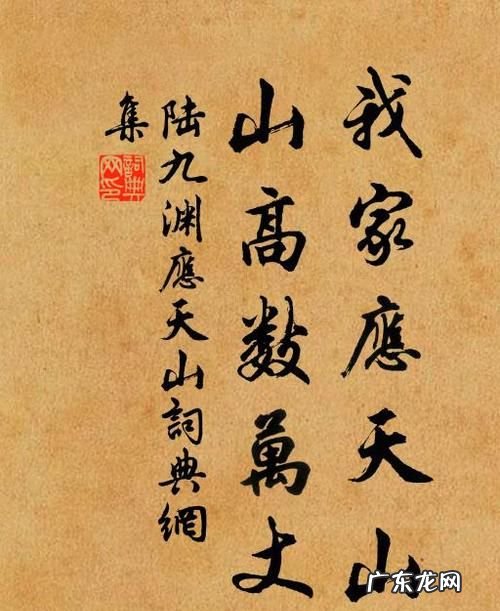 我家應天山
山高数萬丈
陆九渊應天山詞典網
集
詞典网印
广东龙网